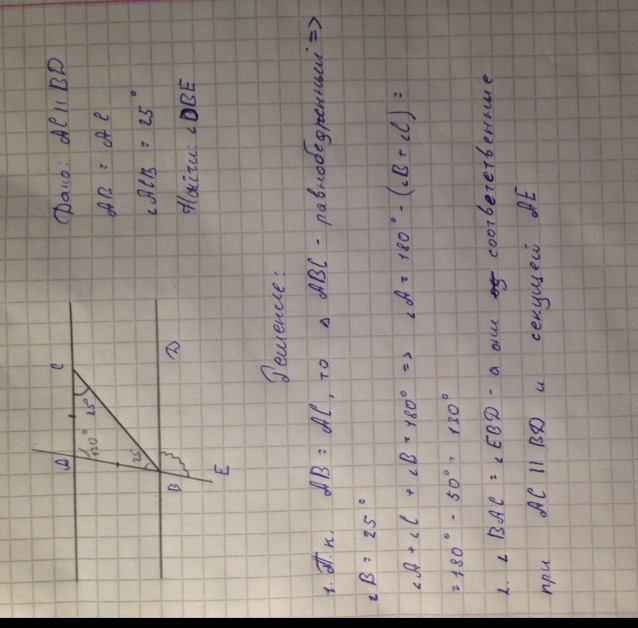 A
C
120°
25°
25
B
D
E
Дано: AC || BD
AB = AC
∠ACB = 25°
Найти: ∠DBE
Решение:
1. Т.к. AB = AC, то Δ ABC - равнобедренный =>
∠B = 25°
∠A + ∠C + ∠B = 180° => ∠A = 180° - (∠B + ∠C) =
= 180° - 50° = 130°
2. ∠ BAC = ∠EBD - а они соответственные
при AC || BD и секущей AE